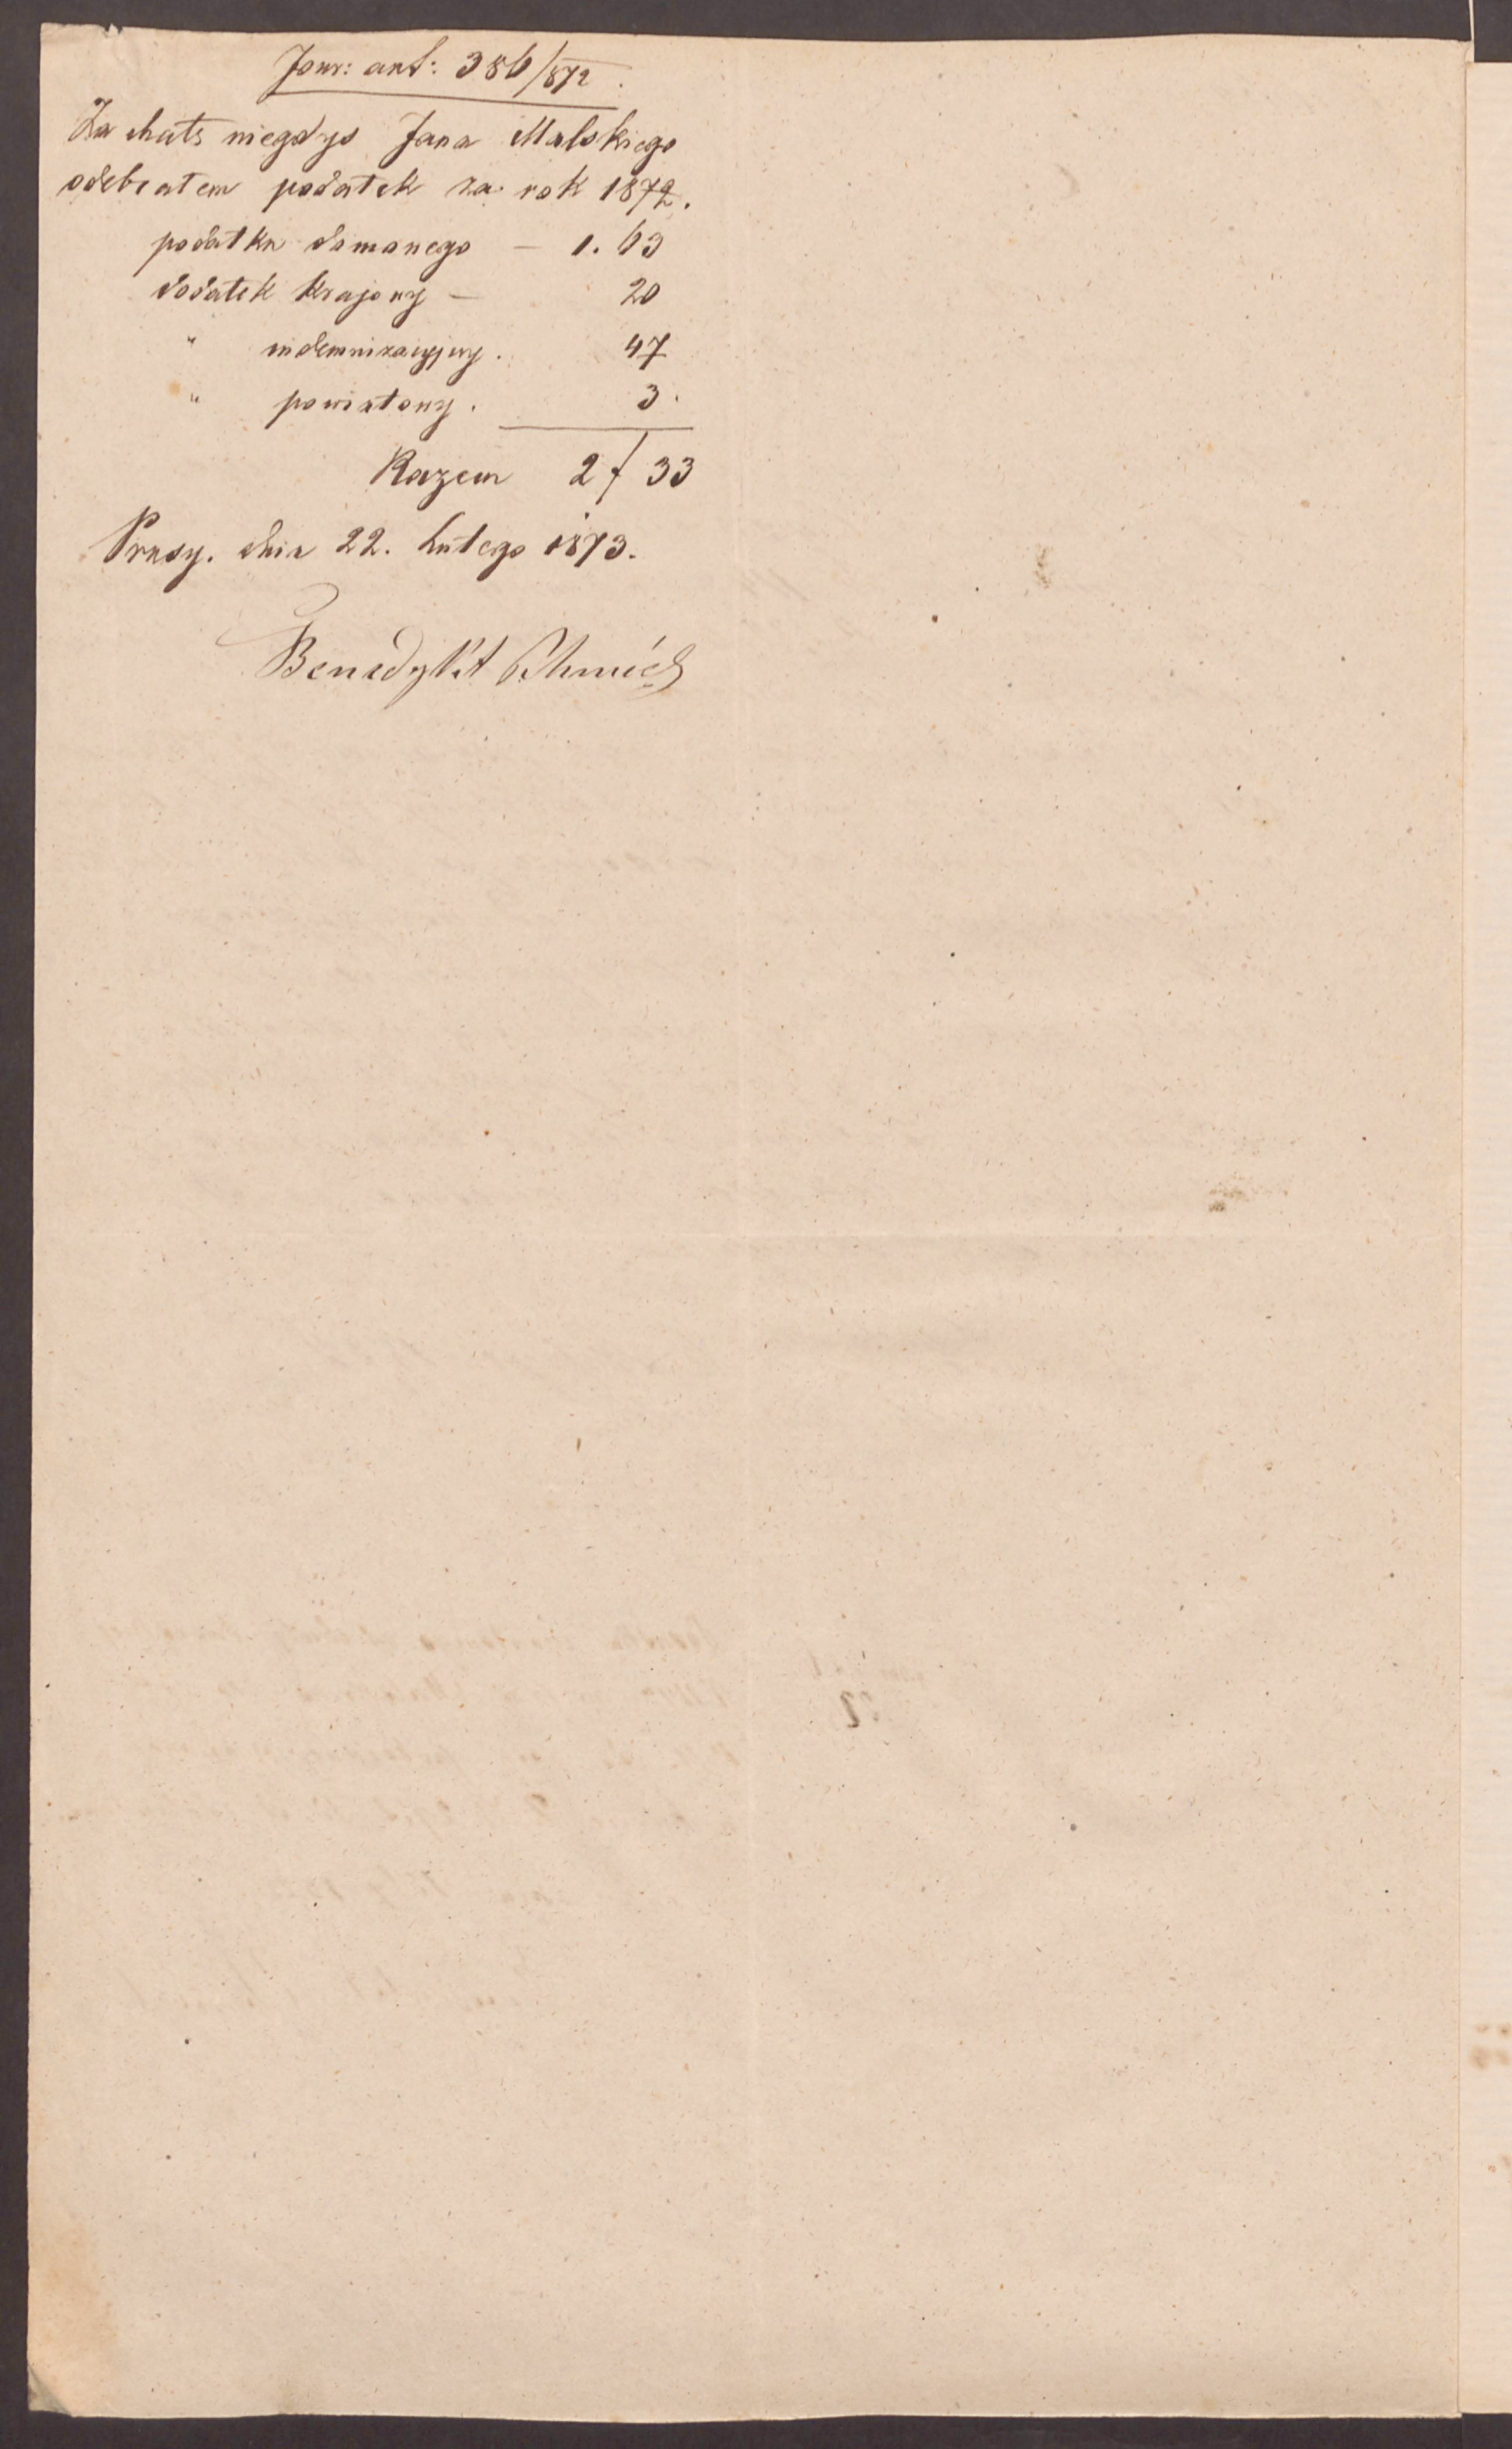 Jour: art: 386/872.
Za chatę niegdyś Jana Malskiego
odebrałem podatek za rok 1872.
podatku domowego — 1. 63
dodatek krajowy — 20
" indemnizacyjny. 47
" powiatowy. 3.
Razem 2 f 33
Prusy. dnia 22. Lutego 1873.
Benedykt